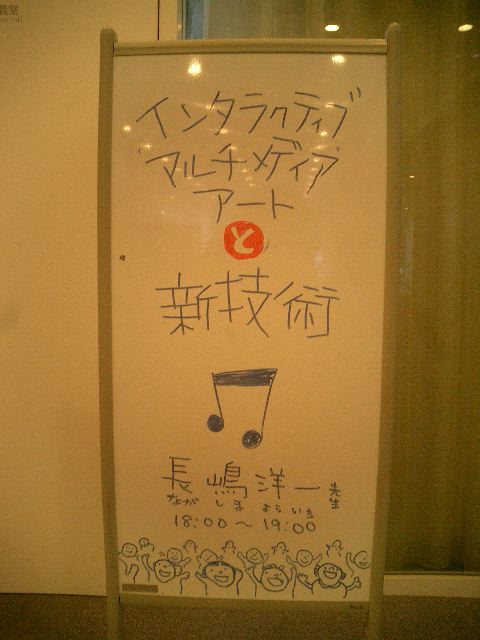 義室
インタラクティブ
マルチメディア
アート
と
新技術
長嶋洋一先生
ながしまよういち
18:00〜19:00